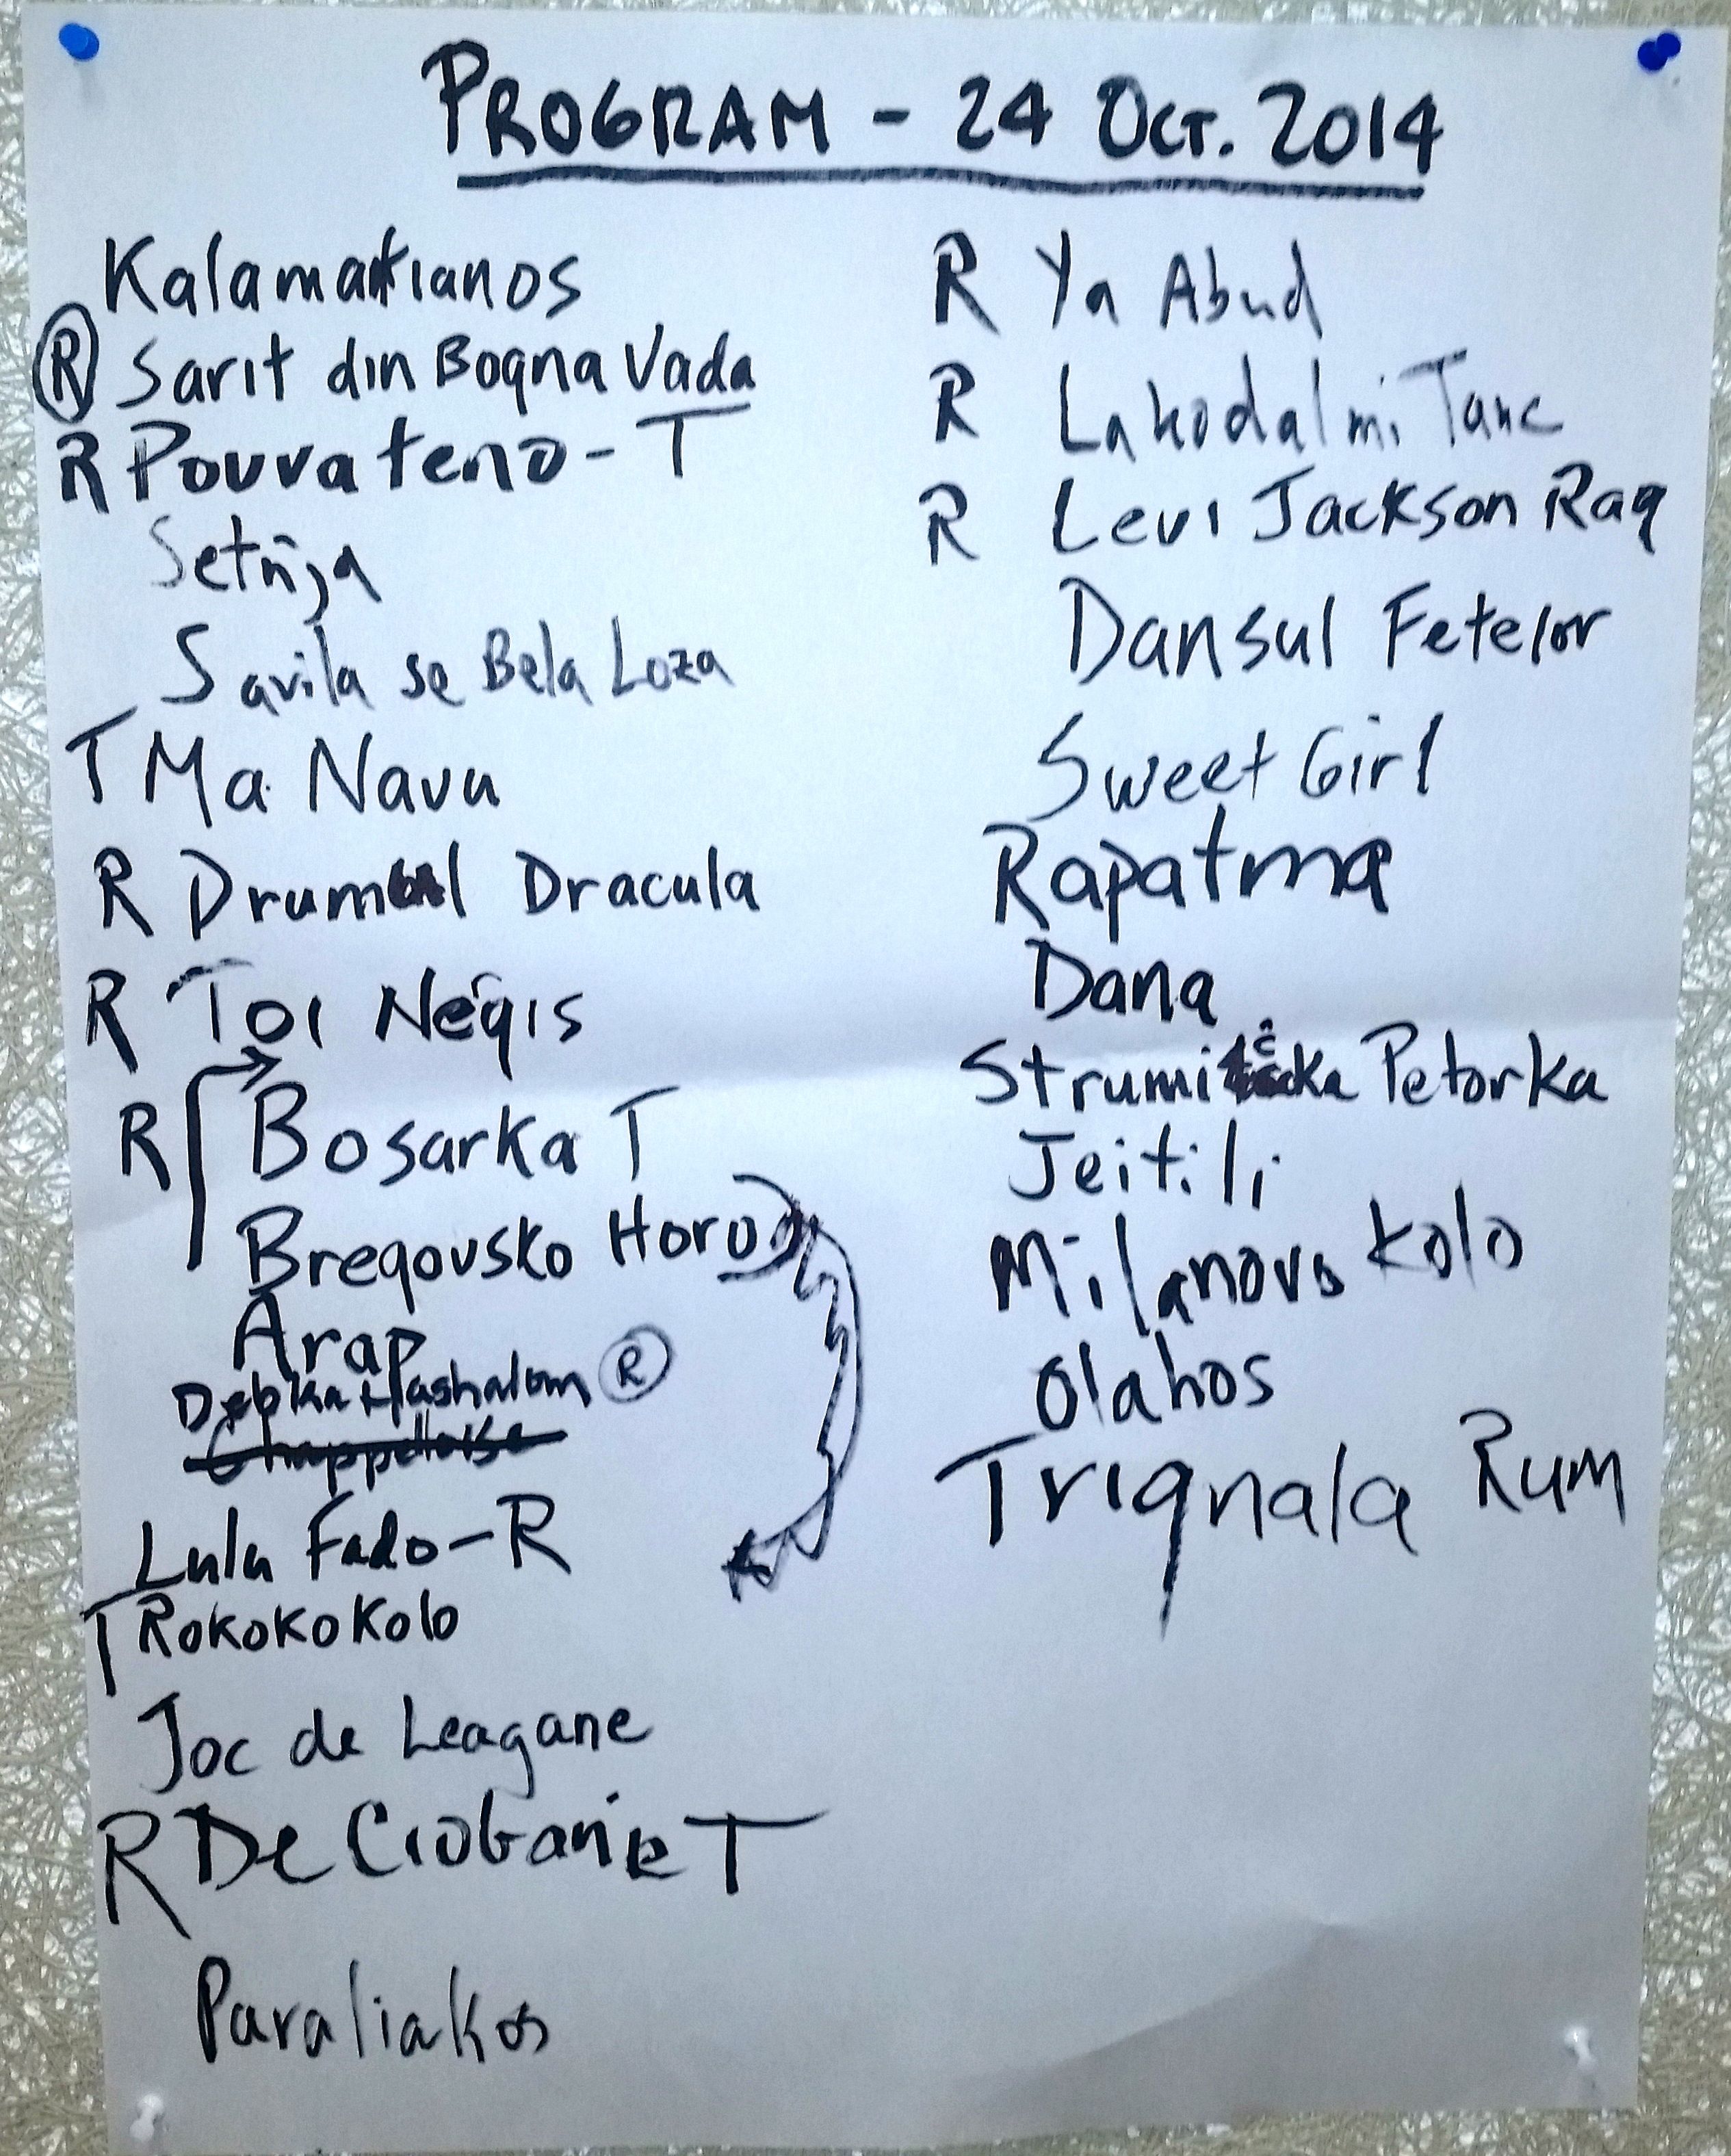 PROGRAM - 24 OCT. 2014
Kalamatianos
R Sarit din Bogna Vada
R Pouvateno - T
Setnja
Savila se Bela Loza
T Ma Navu
R Drumul Dracula
R Toi Negis
R Bosarka T
Bregovsko Horo
Arap
Debka Hashalom R
Chappelloise
Lulu Fado - R
T Rokoko Kolo
Joc de Leagane
R De Ciobanie T
Paraliakos
R Ya Abud
R Lahodal mi Tanc
R Levi Jackson Rag
Dansul Fetelor
Sweet Girl
Rapatma
Dana
Strumička Petorka
Jeitili
Milanovo Kolo
Olahos
Trignala Rum